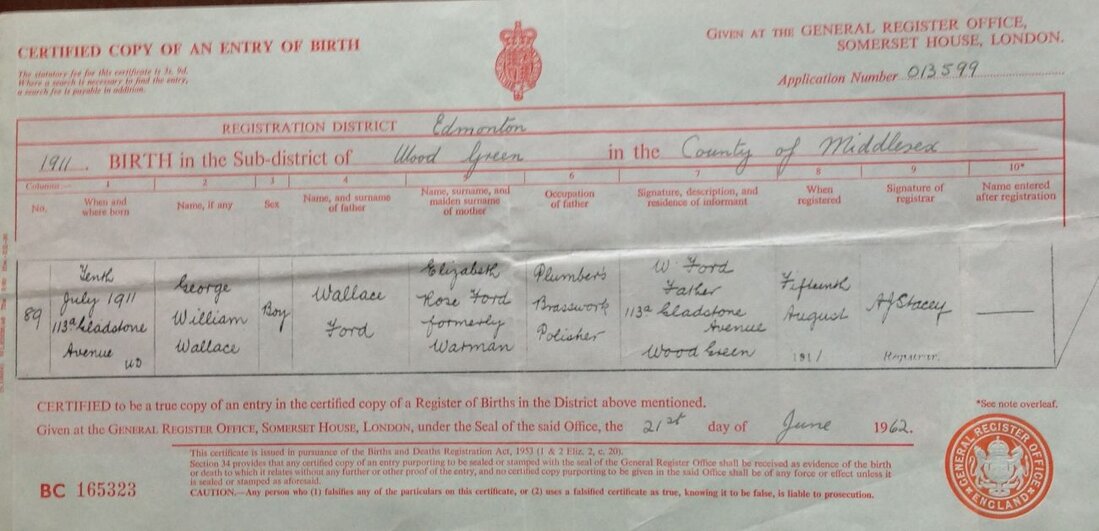 CERTIFIED COPY OF AN ENTRY OF BIRTH
GIVEN AT THE GENERAL REGISTER OFFICE,
SOMERSET HOUSE, LONDON.
The statutory fee for this certificate is 3s. 9d.
Where a search is necessary to find the entry,
a search fee is payable in addition.
Application Number 013599
REGISTRATION DISTRICT Edmonton
1911. BIRTH in the Sub-district of Wood Green in the County of Middlesex
Columns:— 1 2 3 4 5 6 7 8 9 10*
No.
When and
where born
Name, if any
Sex
Name, and surname
of father
Name, surname, and
maiden surname
of mother
Occupation
of father
Signature, description, and
residence of informant
When
registered
Signature of
registrar
Name entered
after registration
89
Tenth
July 1911
113a Gladstone
Avenue
UD
George
William
Wallace
Boy
Wallace
Ford
Elizabeth
Rose Ford
formerly
Warman
Plumber's
Brasswork
Polisher
W Ford
Father
113a Gladstone
Avenue
Wood Green
Fifteenth
August
1911
AJ Stacey
Registrar.
CERTIFIED to be a true copy of an entry in the certified copy of a Register of Births in the District above mentioned.
*See note overleaf.
Given at the GENERAL REGISTER OFFICE, SOMERSET HOUSE, LONDON, under the Seal of the said Office, the 21st day of June 1962.
This certificate is issued in pursuance of the Births and Deaths Registration Act, 1953 (1 & 2 Eliz. 2, c. 20).
Section 34 provides that any certified copy of an entry purporting to be sealed or stamped with the seal of the General Register Office shall be received as evidence of the birth
or death to which it relates without any further or other proof of the entry, and no certified copy purporting to be given in the said Office shall be of any force or effect unless it
is sealed or stamped as aforesaid.
CAUTION.—Any person who (1) falsifies any of the particulars on this certificate, or (2) uses a falsified certificate as true, knowing it to be false, is liable to prosecution.
BC 165323
GENERAL REGISTER OFFICE
ENGLAND